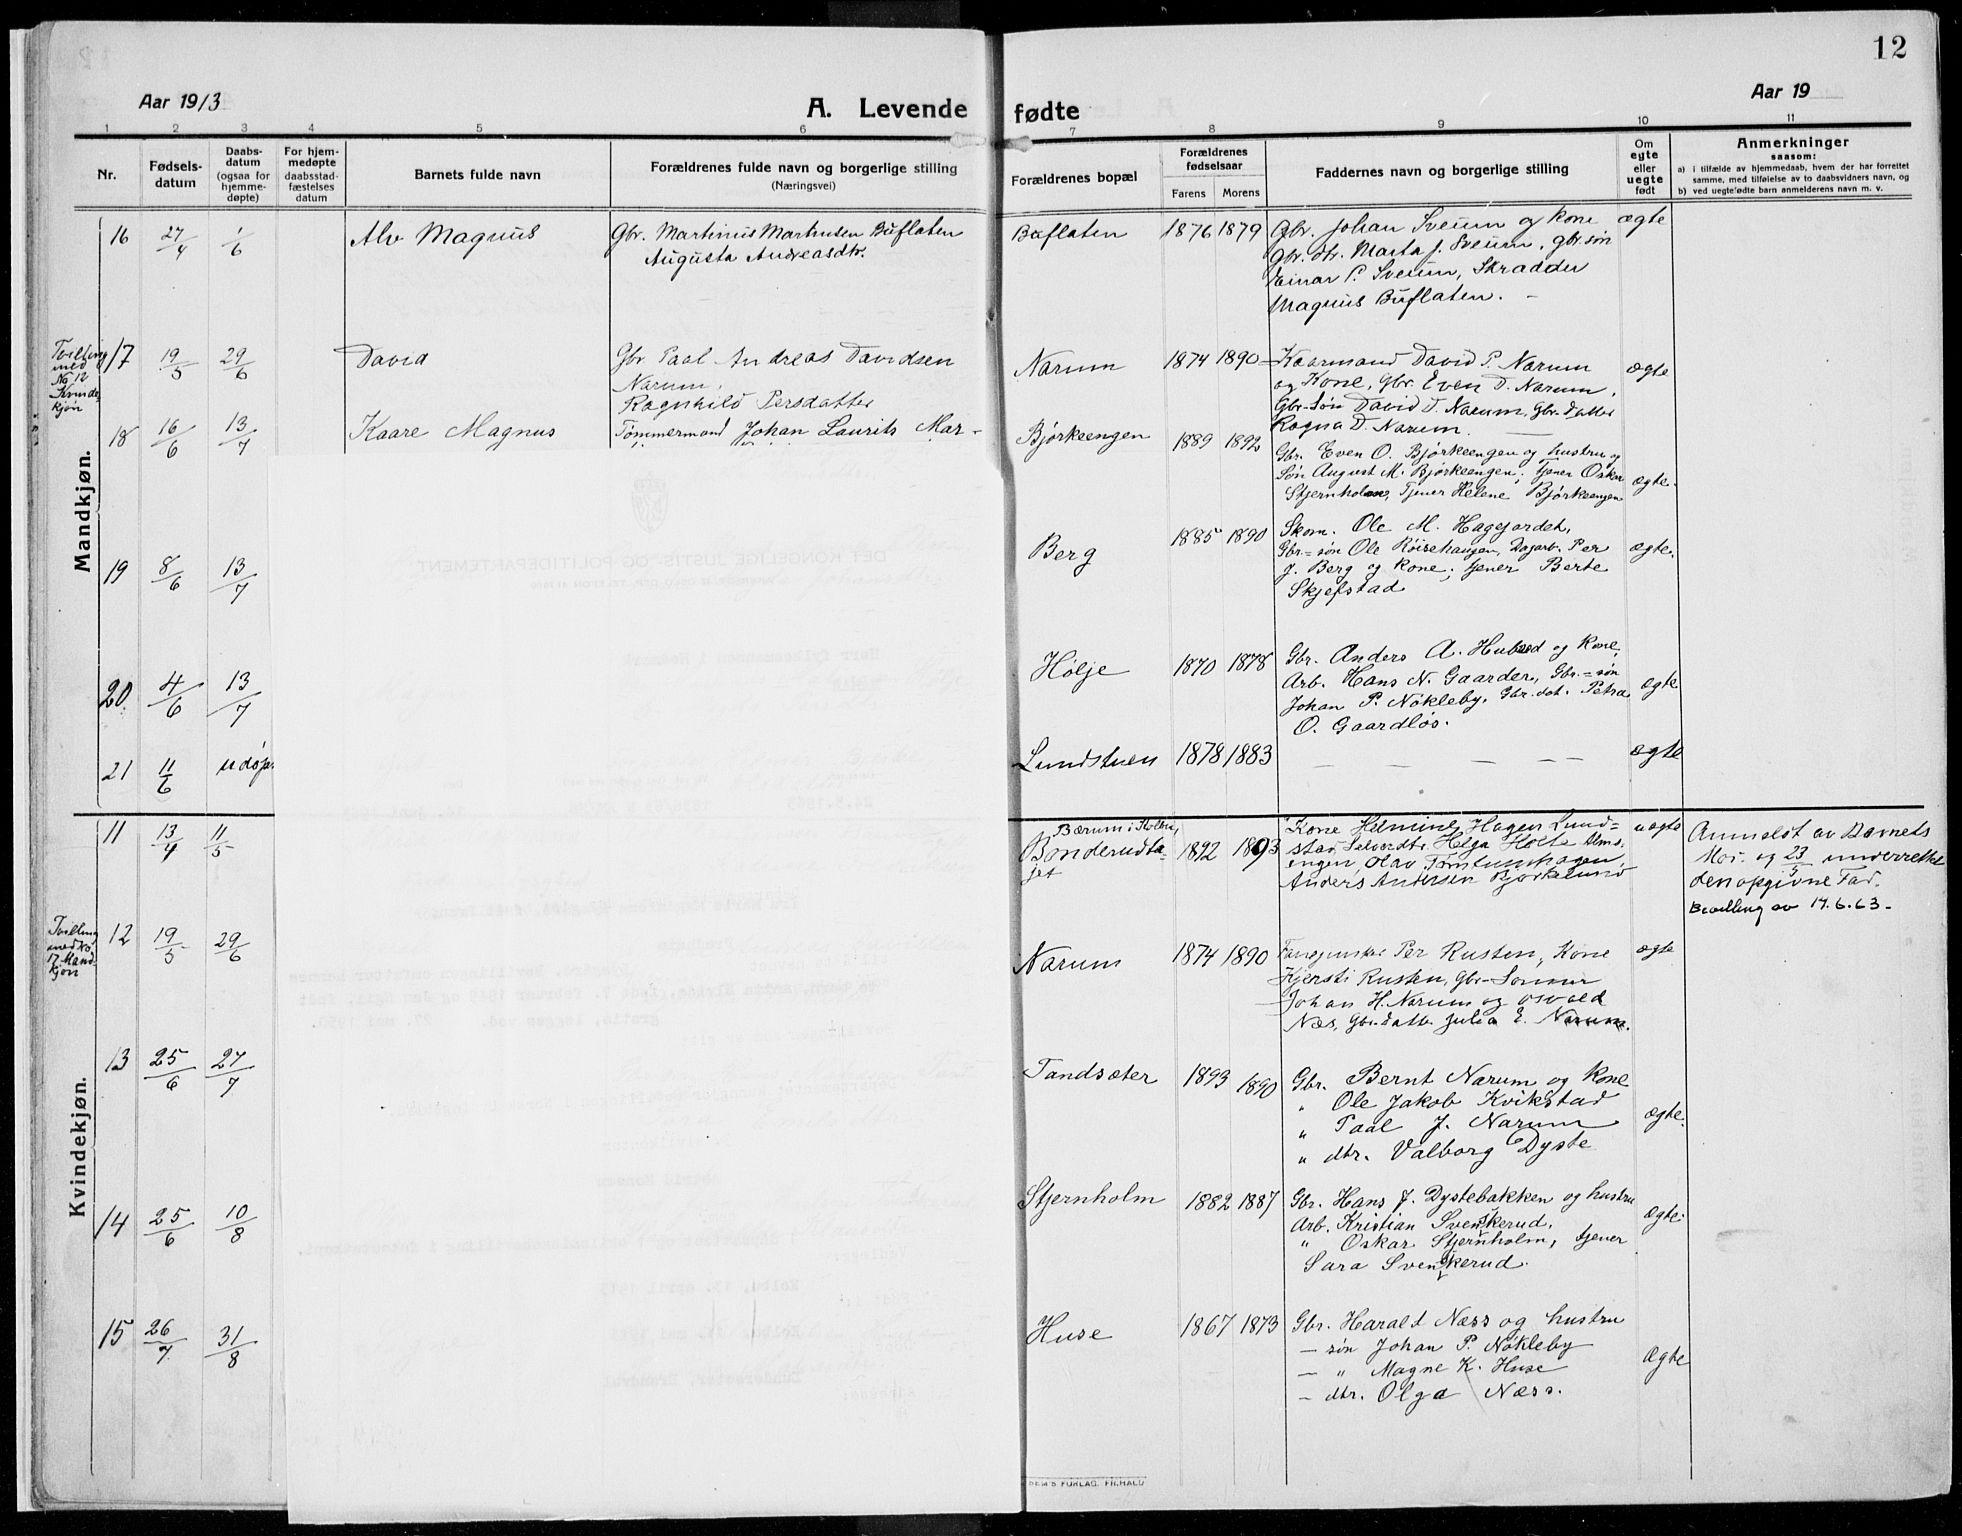 12
Aar 1913
A. Levende fødte
Aar 19
1 2 3 4 5 6 7 8 9 10 11
Nr.
Fødsels-
datum
Daabs-
datum
(ogsaa for
hjemme-
døpte)
For hjem-
medøpte
daabsstad-
fæstelses
datum
Barnets fulde navn
Forældrenes fulde navn og borgerlige stilling
(Næringsvei)
Forældrenes bopæl
Forældrenes
fødselsaar
Farens Morens
Faddernes navn og borgerlige stilling
Om
egte
eller
uegte
født
Anmerkninger
saasom:
a) i tilfælde av hjemmedaab, hvem der har forrettet
samme, med tilføielse av to daabsvidners navn, og
b) ved uegte fødte barn anmelderens navn m. v.
Mandkjøn.
16 27/4 1/6 Alv Magnus
Gbr. Martinus Marthusen Buflaten
Augusta Andreasdtr.
Buflaten 1876 1879
Gbr. Johan Sveum og kone
gbr. dtr. Marta J. Sveum, gbr. søn
Einar P. Sveum, Skrædder
Magnus Buflaten. -
ægte
Tvilling
med
No 12
Kvinde-
kjøn
17 19/5 29/6 David
Gbr. Paal Andreas Davidsen
Narum,
Ragnhild Persdatter
Narum 1874 1890
Kaarmand David P. Narum
og Kone, Gbr. Even D. Narum,
Gbr-søn David D. Narum, Gbr. datter
Ragna D. Narum.
ægte
18 16/6 13/7 Kaare Magnus
Tømmermand Johan Laurits Mar-
Bjørkeengen 1889 1892
Gbr. Even O. Bjørkeengen og hustru og
Søn August M. Bjørkeengen; Tjener Oskar
Stjernholm, Tjener Helene Bjørkeengen
ægte.
19 8/6 13/7
Berg 1885 1890
Skom. Ole M. Hagejordet,
Gbr-søn Ole Røisehaugen, Dagarb. Per
J. Berg og kone; tjener Berte
Skjefstad
ægte.
20 4/6 13/7
Hølje 1870 1878
Gbr. Anders A. Hubred og kone,
Arb. Hans N. Gaarder, Gbr.-søn
Johan P. Nøkleby, Gbr. dat. Petra
O. Gaardløs.
ægte
21 11/6 udøpt
Lundstuen 1878 1883
— — — — —
ægte
Kvindekjøn.
11 13/4 11/5
Bærum i Kolbu,
Bonderudta-
jet
1892 1893
Kone Helmine Hagen Lund-
stad, Helga Holte
Olav Tømtunhagen,
Anders Andersen Bjørkelund
uægte
Anmeldt av Barnets
Mor. og 23/5 underrettet
den opgivne Far.
Bevilling av 17.6.63.-
Tvilling
med No
17 Mand-
kjøn
12 19/5 29/6
Narum 1874 1890
Per Rusten, Kone
Kjersti Rusten, Gbr-Sønner
Johan H. Narum og Osvald
Næs, Gbr. datt. Julia E. Narum.
ægte
13 25/6 27/7
Tandsæter 1893 1890
Gbr. Bernt Narum og kone
" Ole Jakob Kvikstad
" Paal J. Narum
" dtr. Valborg Dyste
ægte.
14 25/6 10/8
Stjernholm 1882 1887
Gbr. Hans J. Dystebakken og hustru
Arb. Kristian Svenskerud,
" Oskar Stjernholm, tjener
Sara Svenskerud.
ægte.
15 26/7 31/8
Huse 1867 1873
Gbr. Harald Næss og hustru
- søn Johan P. Nøkleby
- " Magne K. Huse
- dtr. Olga Næss.
Ægte
SEM'S FORLAG, FR.HALD
DET KONGELIGE JUSTIS- OG POLITIDEPARTEMENT